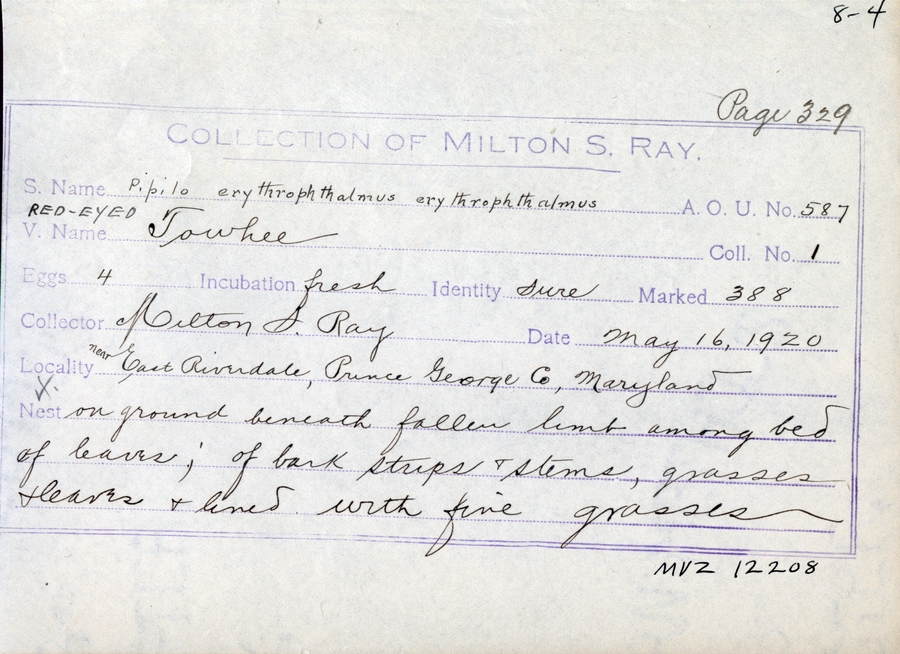 8-4
Page 329
COLLECTION OF MILTON S. RAY.
S. Name Pipilo erythrophthalmus erythrophthalmus A. O. U. No. 587
RED-EYED
V. Name Towhee Coll. No. 1
Eggs 4 Incubation fresh Identity sure Marked 388
Collector Milton S. Ray Date May 16, 1920
near
Locality East Riverdale, Prince George Co, Maryland
X.
Nest on ground beneath fallen limb among bed
of leaves; of bark strips + stems, grasses
+ leaves + lined with fine grasses
MVZ 12208